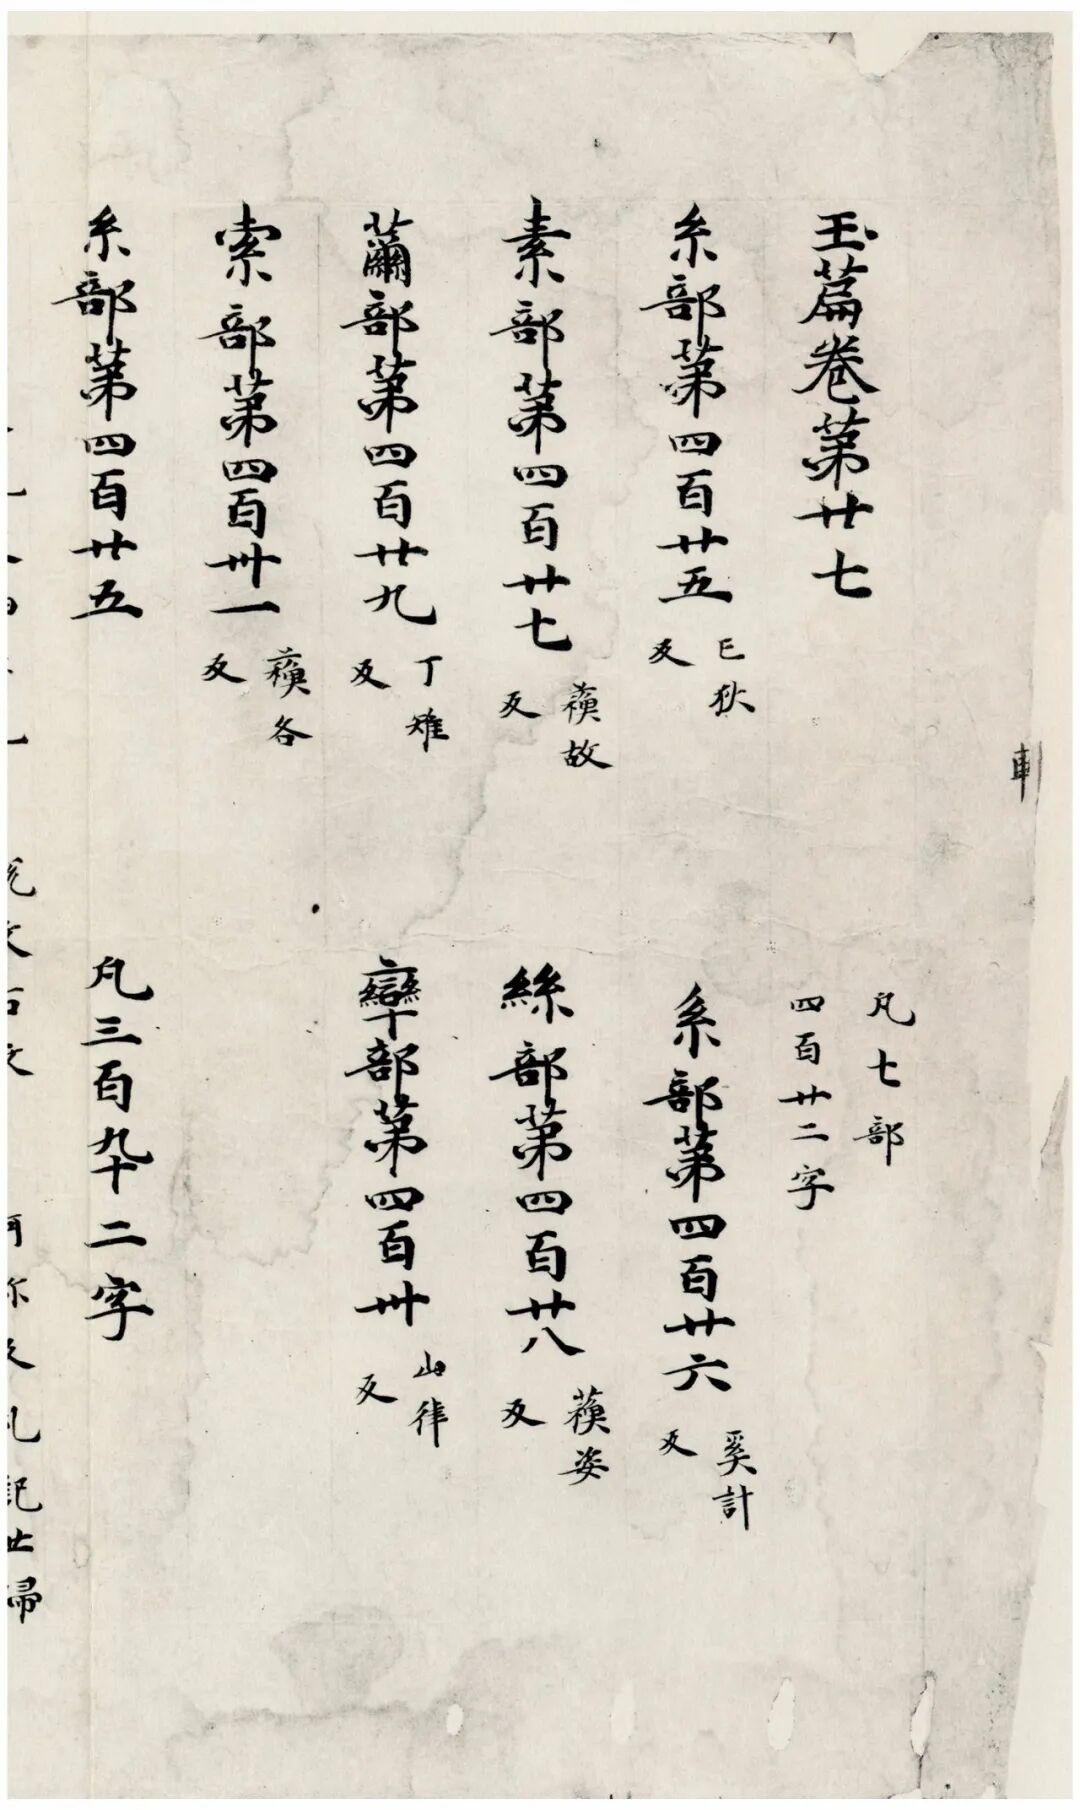 玉篇卷第廿七
凡七部
四百廿二字
糸部第四百廿五
亡狄
反
系部第四百廿六
奚計
反
素部第四百廿七
蘓故
反
絲部第四百廿八
蘓姿
反
黹部第四百廿九
丁雉
反
率部第四百卅
山律
反
索部第四百卅一
蘓各
反
糸部第四百廿五
凡三百九十二字